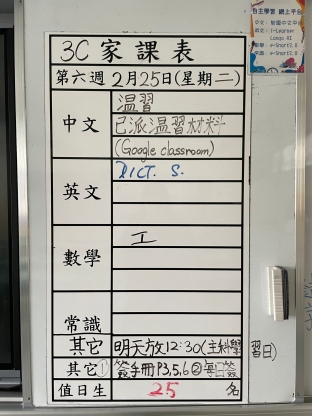 自主學習 網上平台
3C 家課表
第六週 2月25日(星期二)
中文
温習
已派温習材料
(Google classroom)
英文
DICT. S.
數學
工
常識
其它 明天放12:30(主科學習日)
其它① 簽手冊P3,5,6②每日簽
值日生 25 名